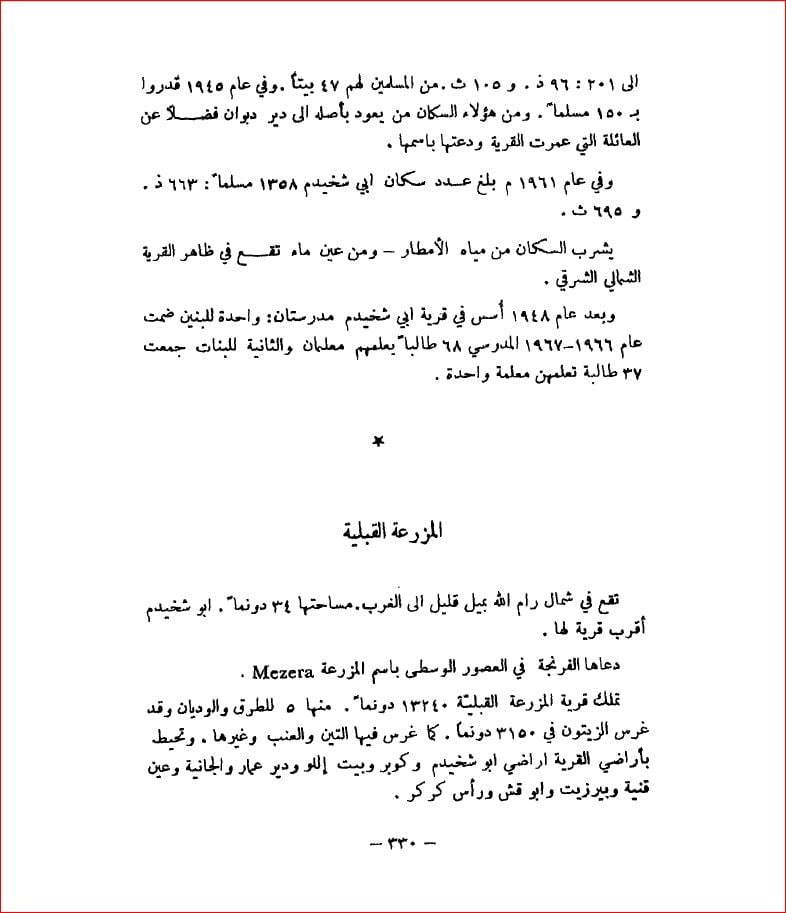 الى ٢٠١ : ٩٦ ذ . و ١٠٥ ث .من المسلمين لهم ٤٧ بيتاً .وفي عام ١٩٤٥ قدروا
بـ ١٥٠ مسلماً . ومن هؤلاء السكان من يعود بأصله الى دير دبوان فضـــلاً عن
العائلة التي عمرت القرية ودعتها باسمها .
وفي عام ١٩٦١ م بلغ عـدد سكان ابي شخيدم ١٣٥٨ مسلماً : ٦٦٣ ذ .
و ٦٩٥ ث .
يشرب السكان من مياه الأمطار – ومن عين ماء تقـــع في ظاهر القرية
الشمالي الشرقي .
وبعد عام ١٩٤٨ أُسس في قرية ابي شخيدم مدرستان: واحدة للبنين ضمت
عام ١٩٦٦–١٩٦٧ المدرسي ٦٨ طالباً يعلمهم معلمان والثانية للبنات جمعت
٣٧ طالبة تعلمهن معلمة واحدة .
★
المزرعة القبلية
تقع في شمال رام الله بميل قليل الى الغرب.مساحتها ٣٤ دونماً . ابو شخيدم
أقرب قرية لها .
دعاها الفرنجة في العصور الوسطى باسم المزرعة Mezera .
تملك قرية المزرعة القبليّة ١٣٢٤٠ دونماً . منها ٥ للطرق والوديان وقد
غرس الزيتون في ٣١٥٠ دونماً . كما غرس فيها التين والعنب وغيرها . وتحيط
بأراضي القرية اراضي ابو شخيدم وكوبر وبيت إللو ودير عمار والجانية وعين
قنية وبيرزيت وابو قش ورأس كركر .
– ٣٣٠ –